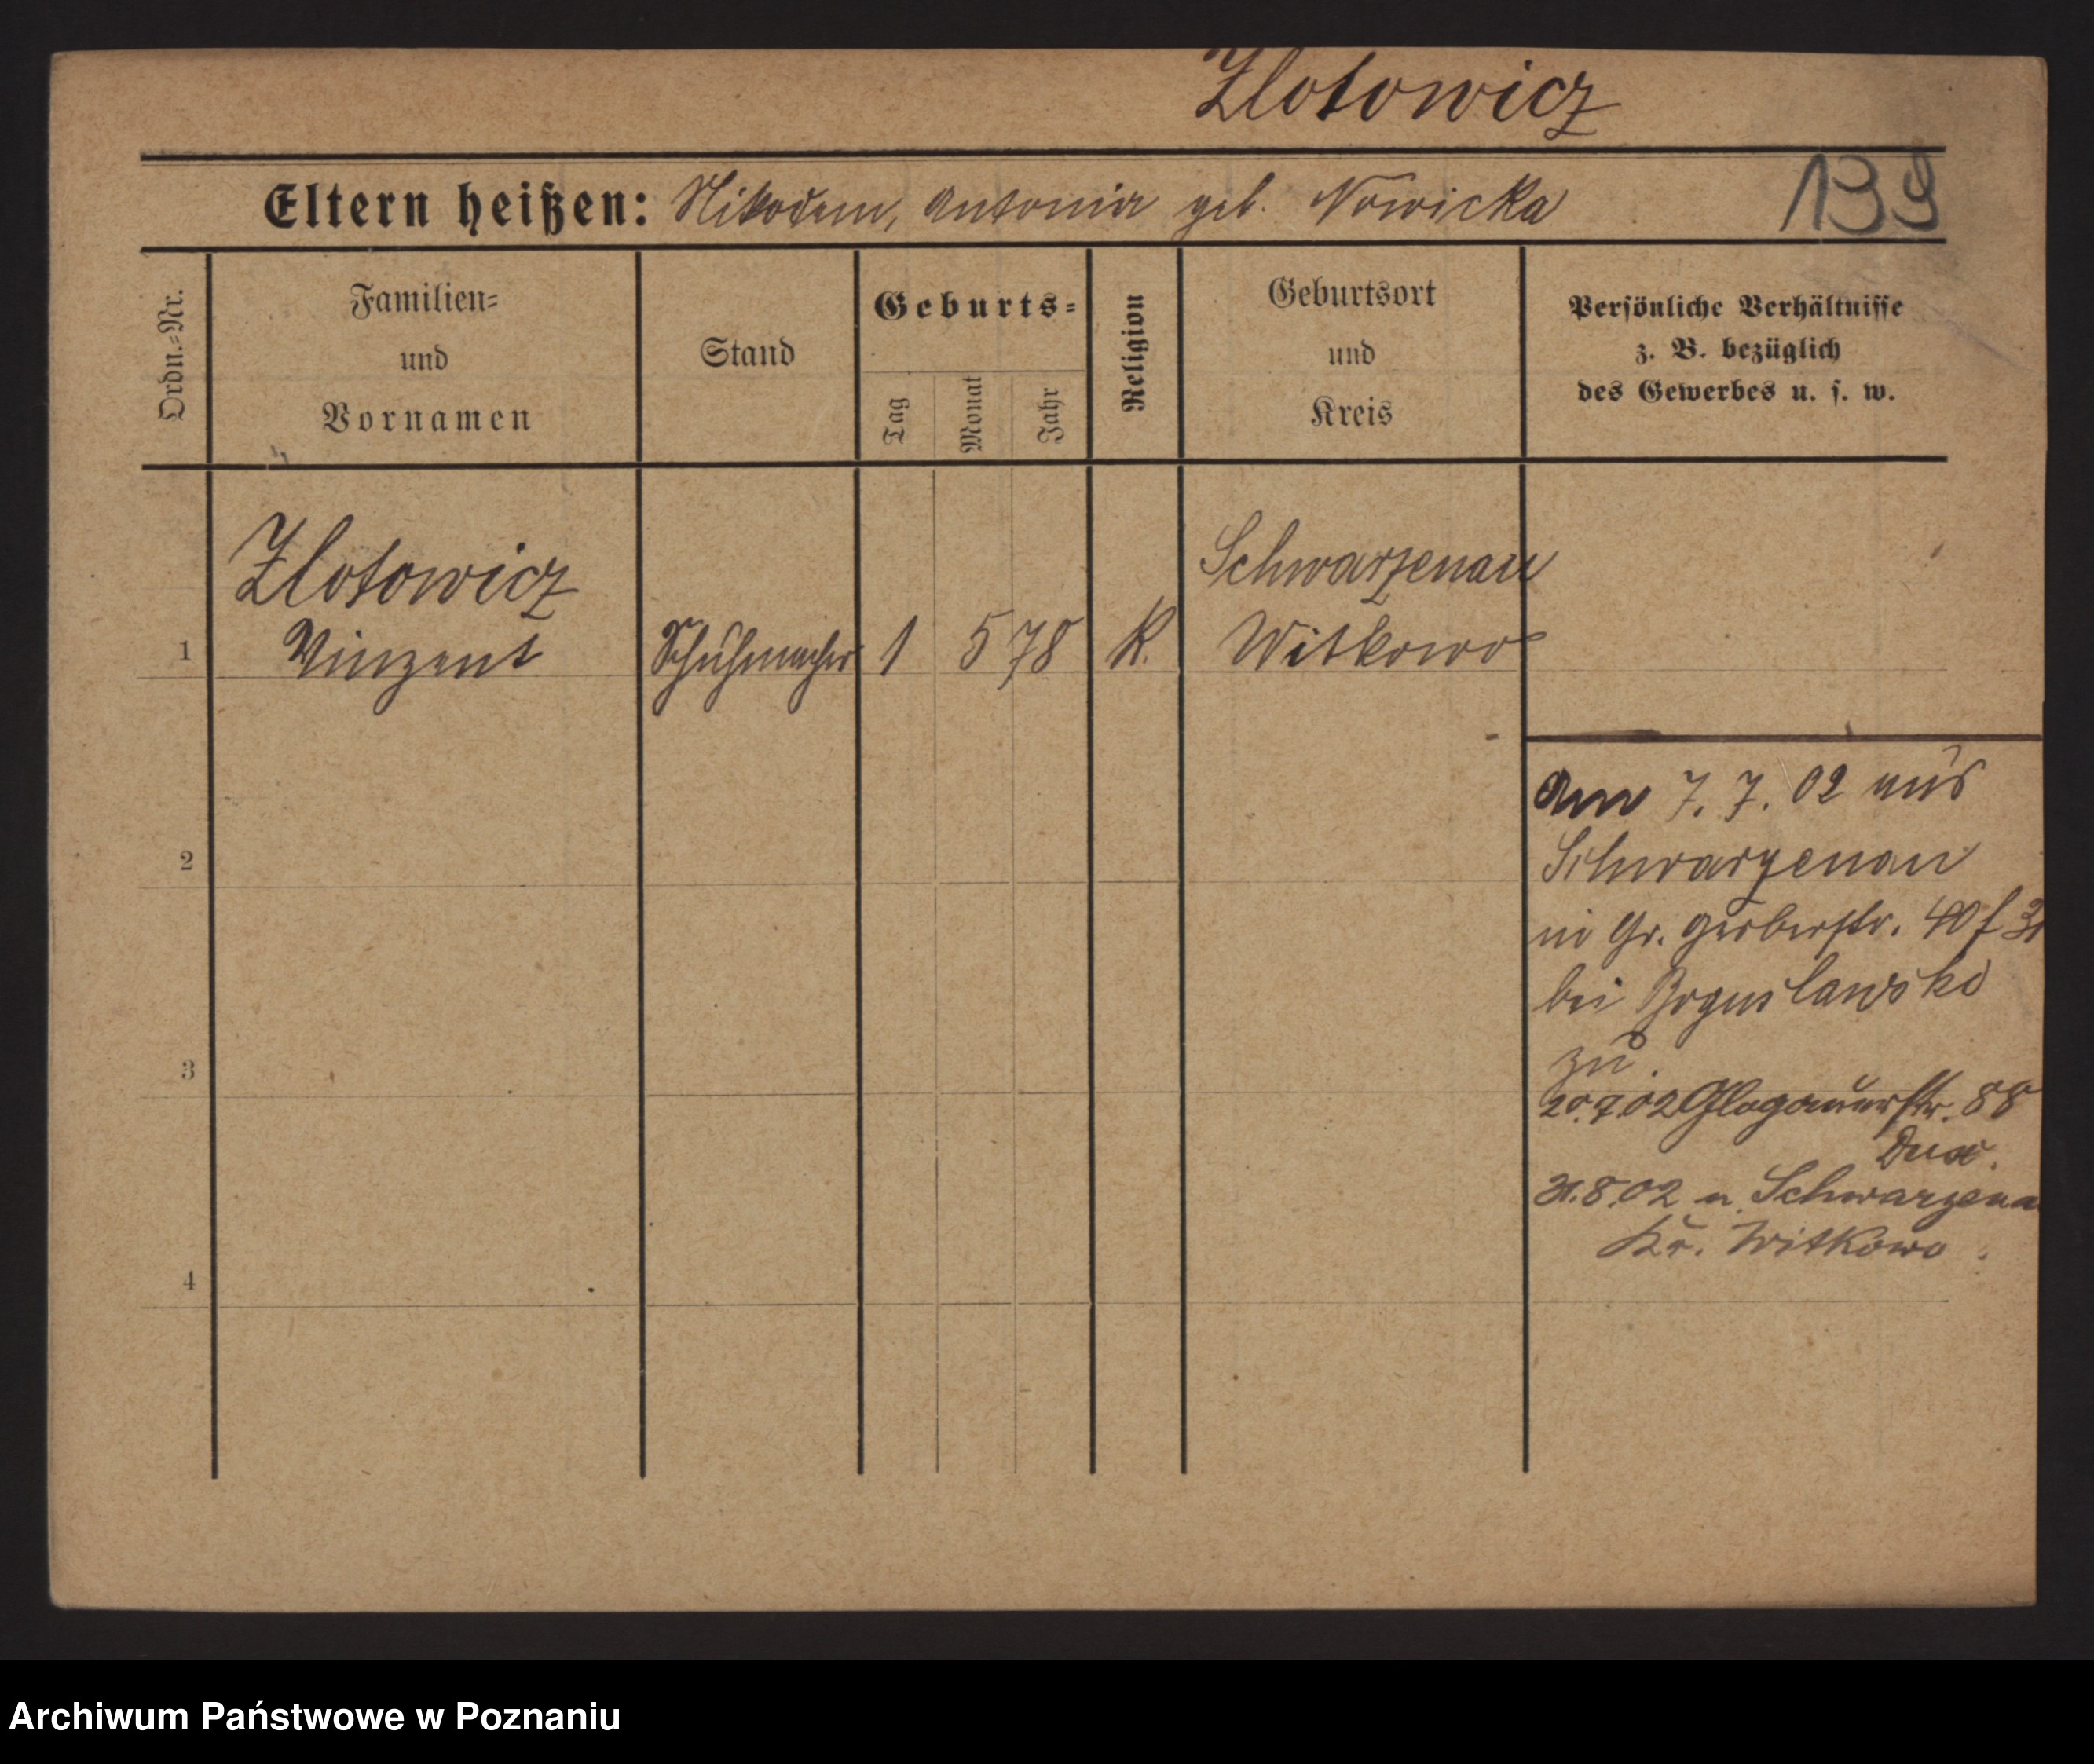 Zlotowicz
139
Eltern heißen: Nikodem, Antonia geb. Nowicka
Ordn.-Nr.
Familien-
und
Vornamen
Stand
Geburts-
Tag
Monat
Jahr
Religion
Geburtsort
und
Kreis
Persönliche Verhältnisse
z. B. bezüglich
des Gewerbes u. s. w.
Zlotowicz
Schwarzenau
1 Vinzent Schuhmacher 1 5 78 K. Witkowo
Am 7. 7. 02 aus
2 Schwarzenau
in Gr. Gerberstr. 40
bei Boguslawski
zu.
3
20.7.02 Glogauerstr. 88
31.8.02 n. Schwarzena
Kr. Witkowo.
4
Archiwum Państwowe w Poznaniu